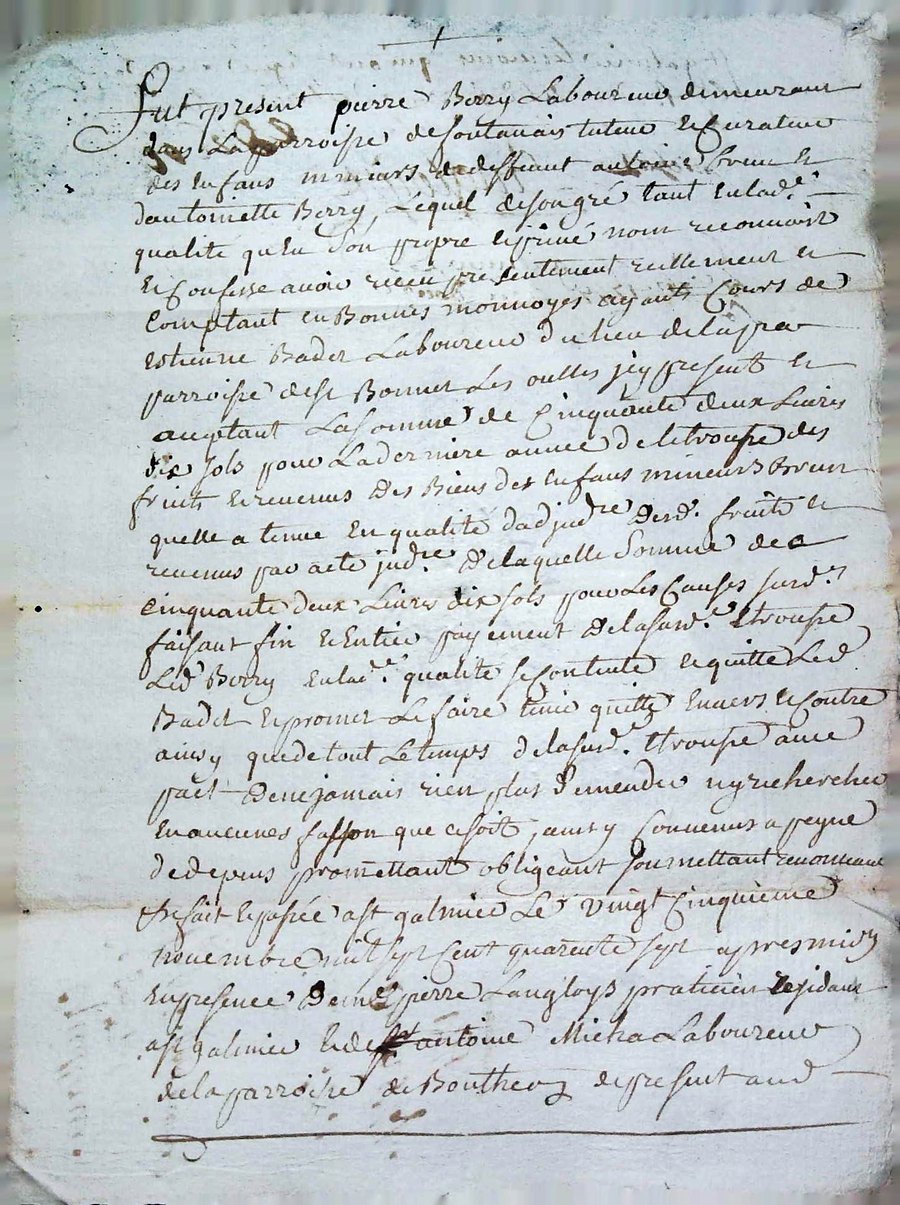 Fut present pierre Berry Laboureur demeurant
dans La parroisse de fontanais tuteur et Curateur
des Enfans mineurs de deffunt antoine breur et
dantoinette Berry, Lequel de son gré tant En lad.e
qualité qu'En son propre et privé nom reconnoist
et Confesse avoir receu presentement reellement et
Comptant en Bonnes monnoyes ayants Cours de
estienne Badet Laboureur du lieu de la pra
parroisse de st Bonnet Les oulles jcy present et
acceptant La somme de Cinquante deux Livres
dix sols pour La derniere année de letrousse des
fruits et revenus des Biens des Enfans mineurs breur
quelle a tenue En qualité dadjud.re desd. fruits et
revenus par acte jud.re de laquelle somme de
cinquante deux Livres dix sols pour Les Causes susd.
faisant fin et Entier payement de la susd. Etrousse
Led. Berry En lad.e qualité se contente et quitte Led.
Badet et promet Le faire tenir quitte Envers et Contre
ainsy que de tout Le temps de la susd. Etrousse avec
pact de ne jamais rien plus demander ny rechercher
En aucunes fasson que ce soit, ainsy Convenus a peyne
de depens promettant obligeant soumettant renonceant
fait et passée a st galmier Le vingt Cinquieme
novembre mil sept Cent quarente sept apres midy
En presence de me pierre Langloys praticien residant
a st galmier et de antoine Micha Laboureur
de la parroisse de Boutheon de present aud